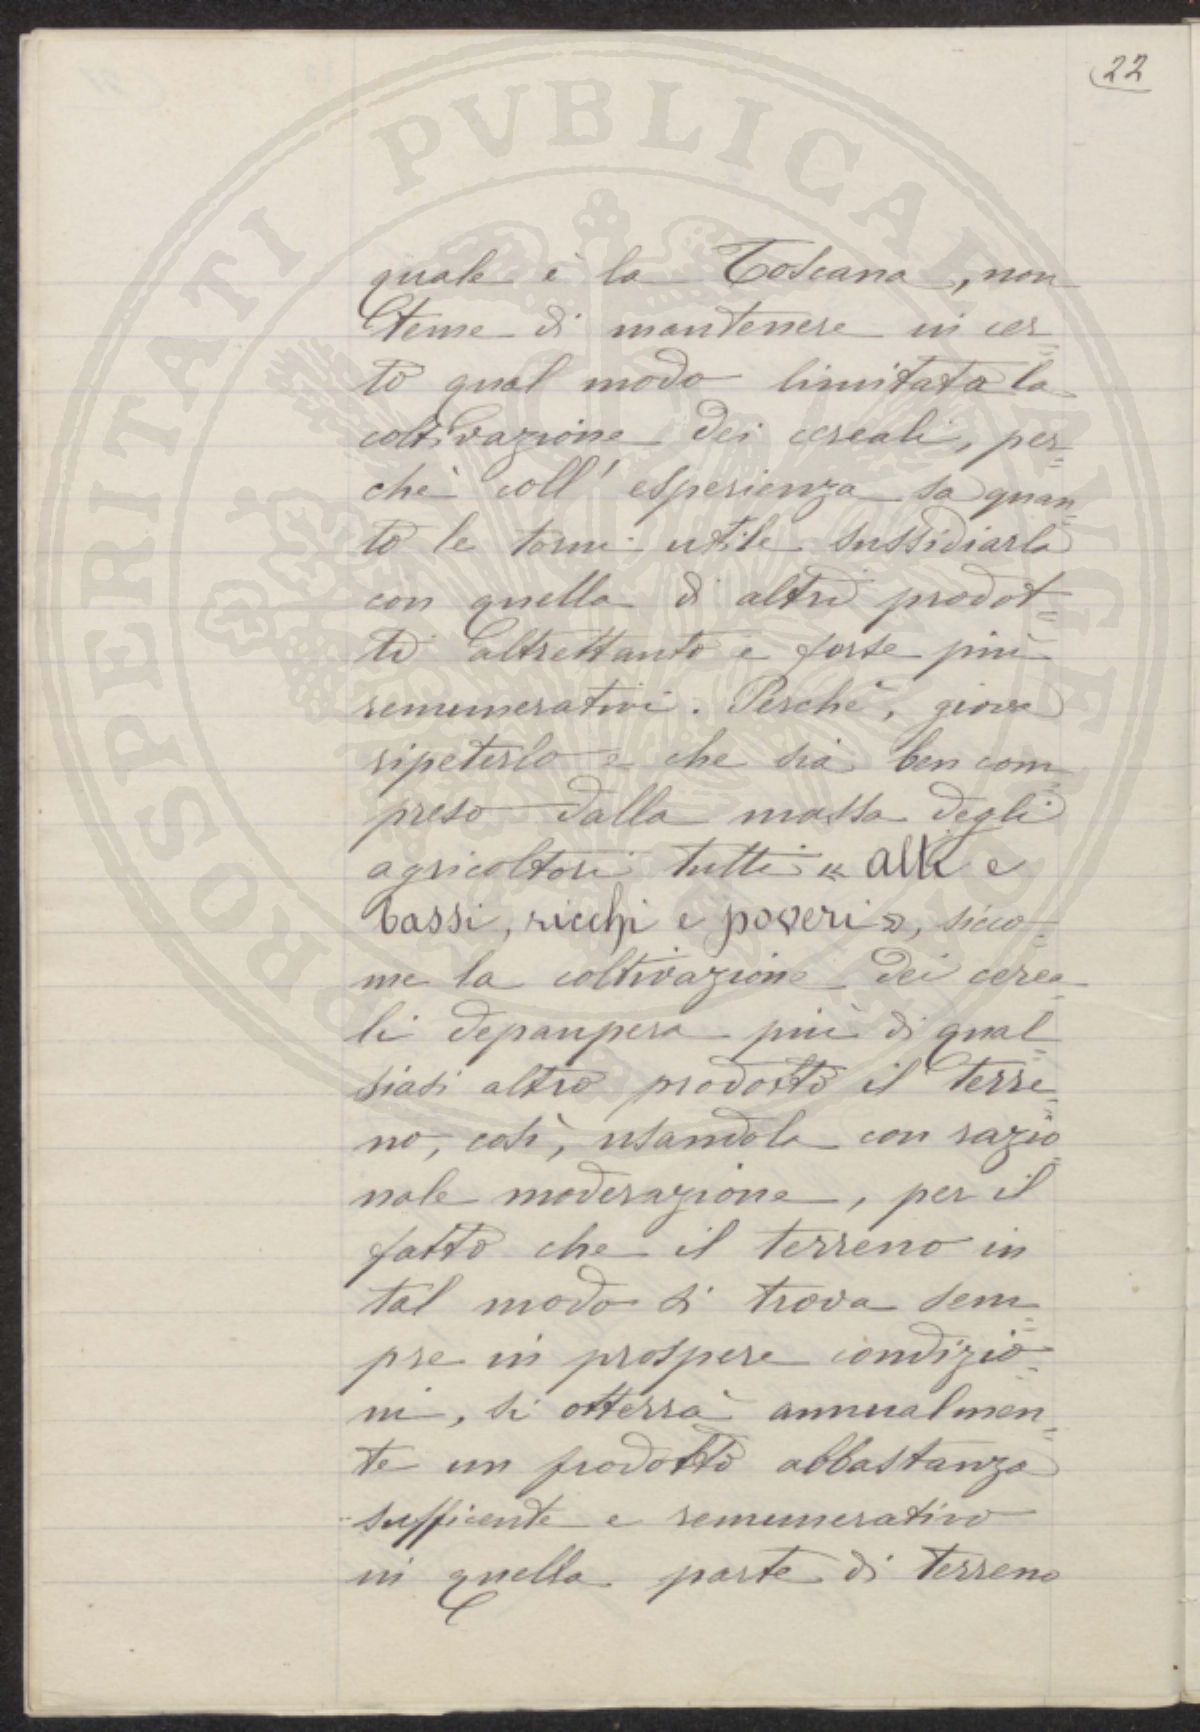 22
quale è la Toscana, non
teme di mantenere in cer=
to qual modo limitata la
coltivazione dei cereali, per=
chè coll' esperienza sa quan=
to le torni utile sussidiarla
con quella di altri prodot=
ti altrettanto e forse più
remunerativi. Perchè, giova
ripeterlo e che sia ben com=
preso dalla massa degli
agricoltori tutti « alti e
bassi, ricchi e poveri », sicco=
me la coltivazione dei cerea=
li depaupera più di qual=
siasi altro prodotto il terre=
no, così, usandola con razio=
nale moderazione, per il
fatto che il terreno in
tal modo si trova sem=
pre in prospere condizio=
ni, si otterrà annualmen=
te un prodotto abbastanza
sufficente e remunerativo
in quella parte di terreno
PROSPERITATI PVBLICAE AVGENDAE